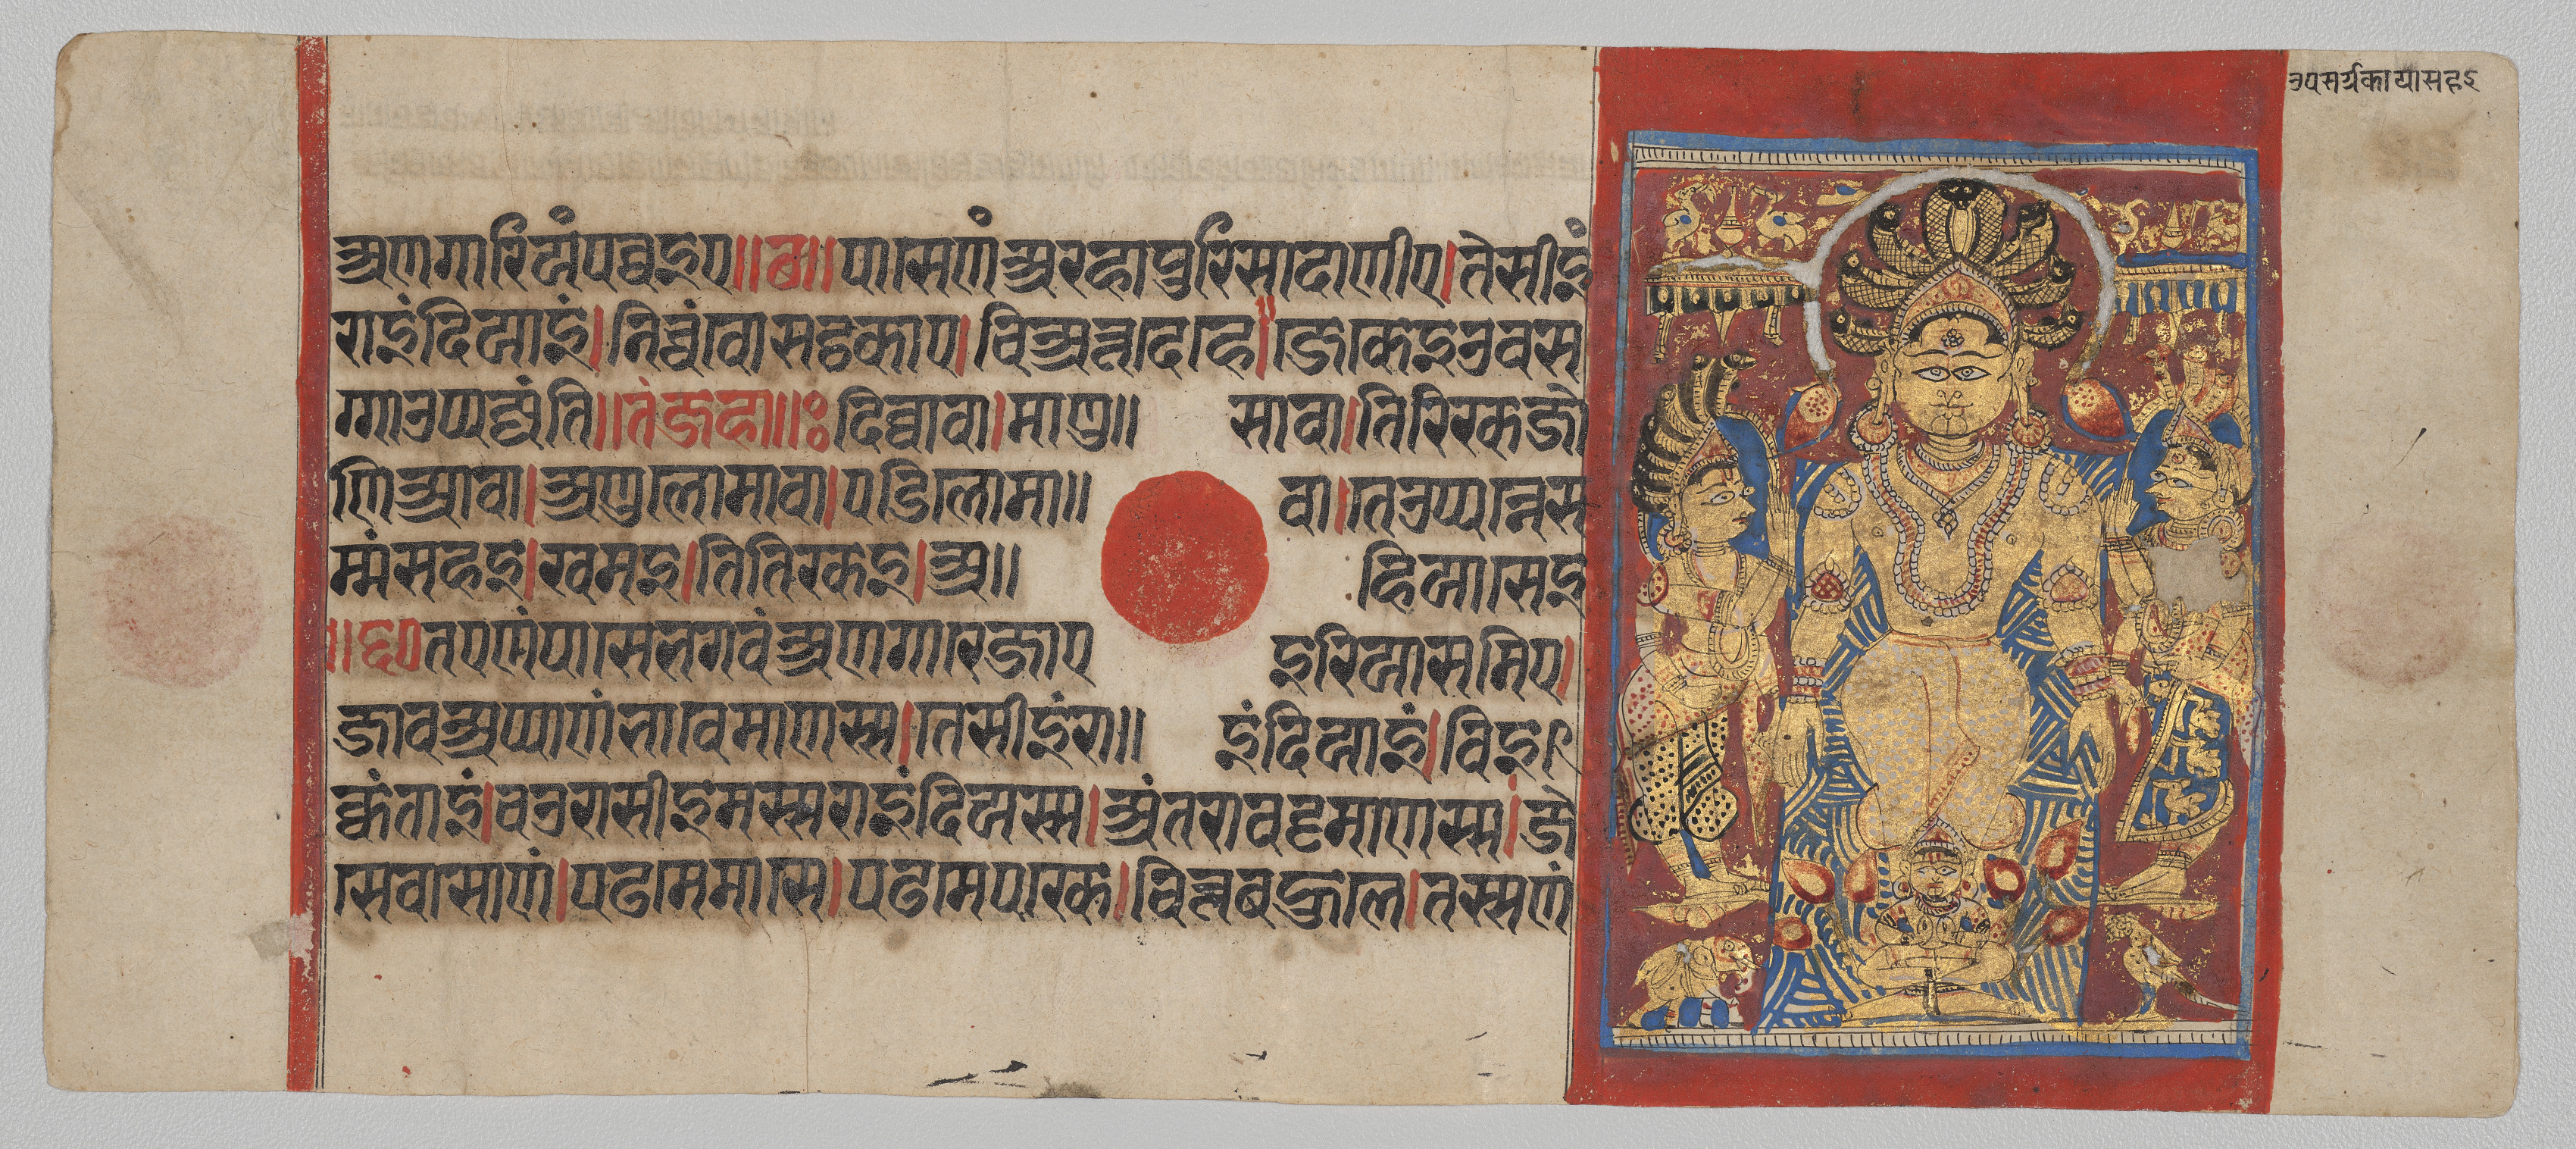 उपसर्यकायासहइ
अणगारिअंपव्वइए॥छ॥पासेणंअरहापुरिसादाणीए।तेसीइं
राइंदिआइं।निच्चंवोसट्ठकाए।चिअत्तदेहे।जेकेइउवस
ग्गाउप्पज्जंति॥तंजहा॥ः दिव्वावा।माणु॥ सावा।तिरिरकजो
णिआवा।अणुलोमावा।पडिलोमा॥ वा।तेउप्पन्नेस
म्मंसहइ।खमइ।तितिरकइ।अ॥ हिआसेइ
॥छ॥तएणंपासेभगवंअणगारेजाए इरिआसमिए।
जावअप्पाणंभावेमाणस्स।तेसीइंरा॥ इंदिआइं।विइ
क्कंताइं।चउरासीइमस्सराइंदिअस्स।अंतरावट्टमाणस्स।जे
सेवासाणं।पढमेमासे।पढमेपरके।चित्तबहुले।तस्सणं